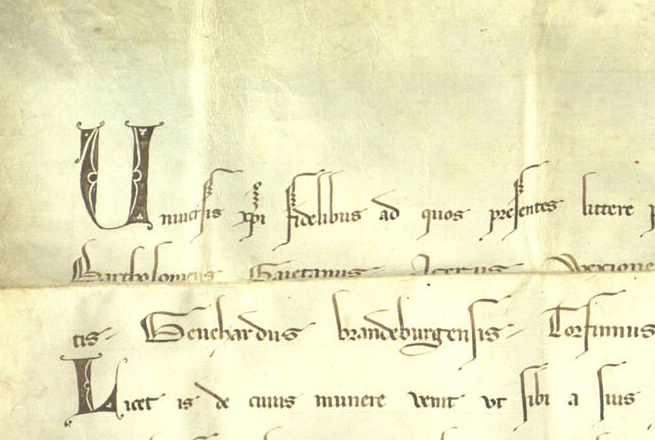 Uniusis xpi fidelibus ad quos presentes littere p
Bartholomeus Gaietanus
tis Geuehardus brandeburgensis Torfinnus
Licet is de cuius munere venit vt sibi a suis